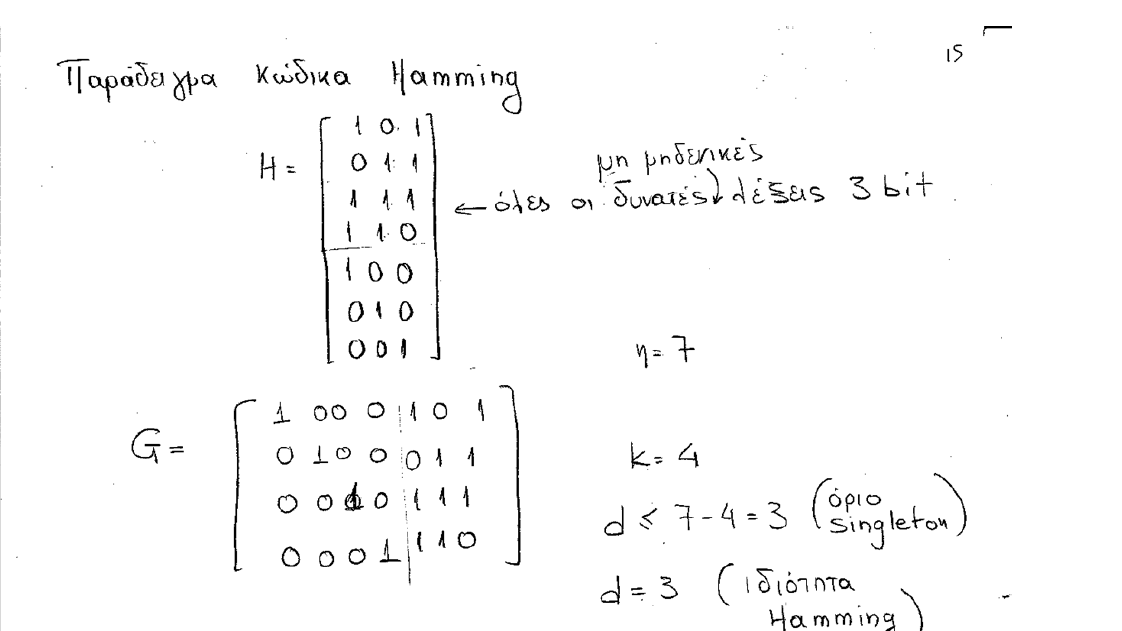 15
Παράδειγμα Κώδικα Hamming
H = [ 1 0 1
0 1 1
1 1 1
1 1 0
1 0 0
0 1 0
0 0 1 ]
μη μηδενικές
← όλες οι δυνατές↓ λέξεις 3 bit
η = 7
G = [ 1 0 0 0 1 0 1
0 1 0 0 0 1 1
0 0 1 0 1 1 1
0 0 0 1 1 1 0 ]
k = 4
d ≤ 7 - 4 = 3 (όριο
singleton)
d = 3 (ιδιότητα
Hamming)